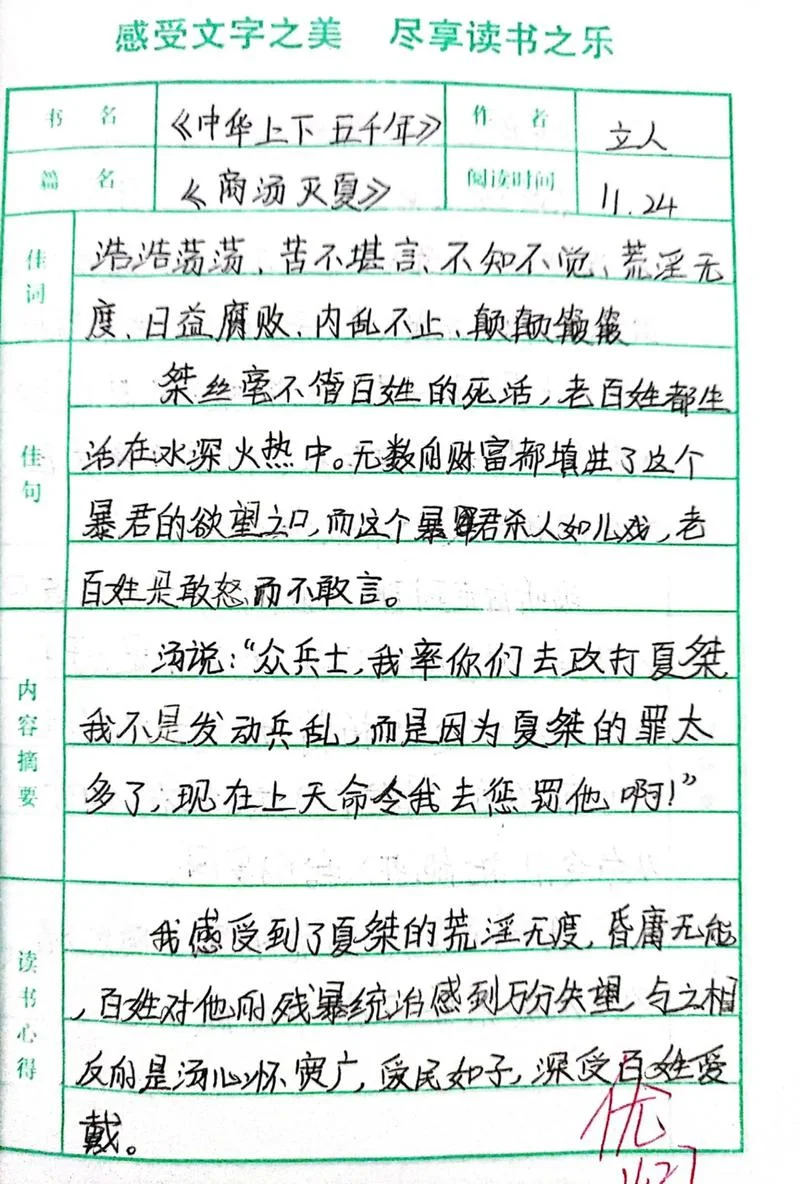 感受文字之美 尽享读书之乐
书名 《中华上下五千年》 作者 立人
篇名 《商汤灭夏》 阅读时间 11.24
佳词
浩浩荡荡、苦不堪言、不知不觉、荒淫无
度、日益腐败、内乱不止、颠颠簸簸
佳句
桀丝毫不管百姓的死活,老百姓都生
活在水深火热中。无数的财富都填进了这个
暴君的欲望之口,而这个暴君杀人如儿戏,老
百姓是敢怒而不敢言。
内容摘要
汤说:“众兵士,我率你们去攻打夏桀
我不是发动兵乱,而是因为夏桀的罪太
多了,现在上天命令我去惩罚他啊!”
读书心得
我感受到了夏桀的荒淫无度,昏庸无能
,百姓对他的残暴统治感到万分失望,与之相
反的是汤心怀宽广,爱民如子,深受百姓爱
戴。
优